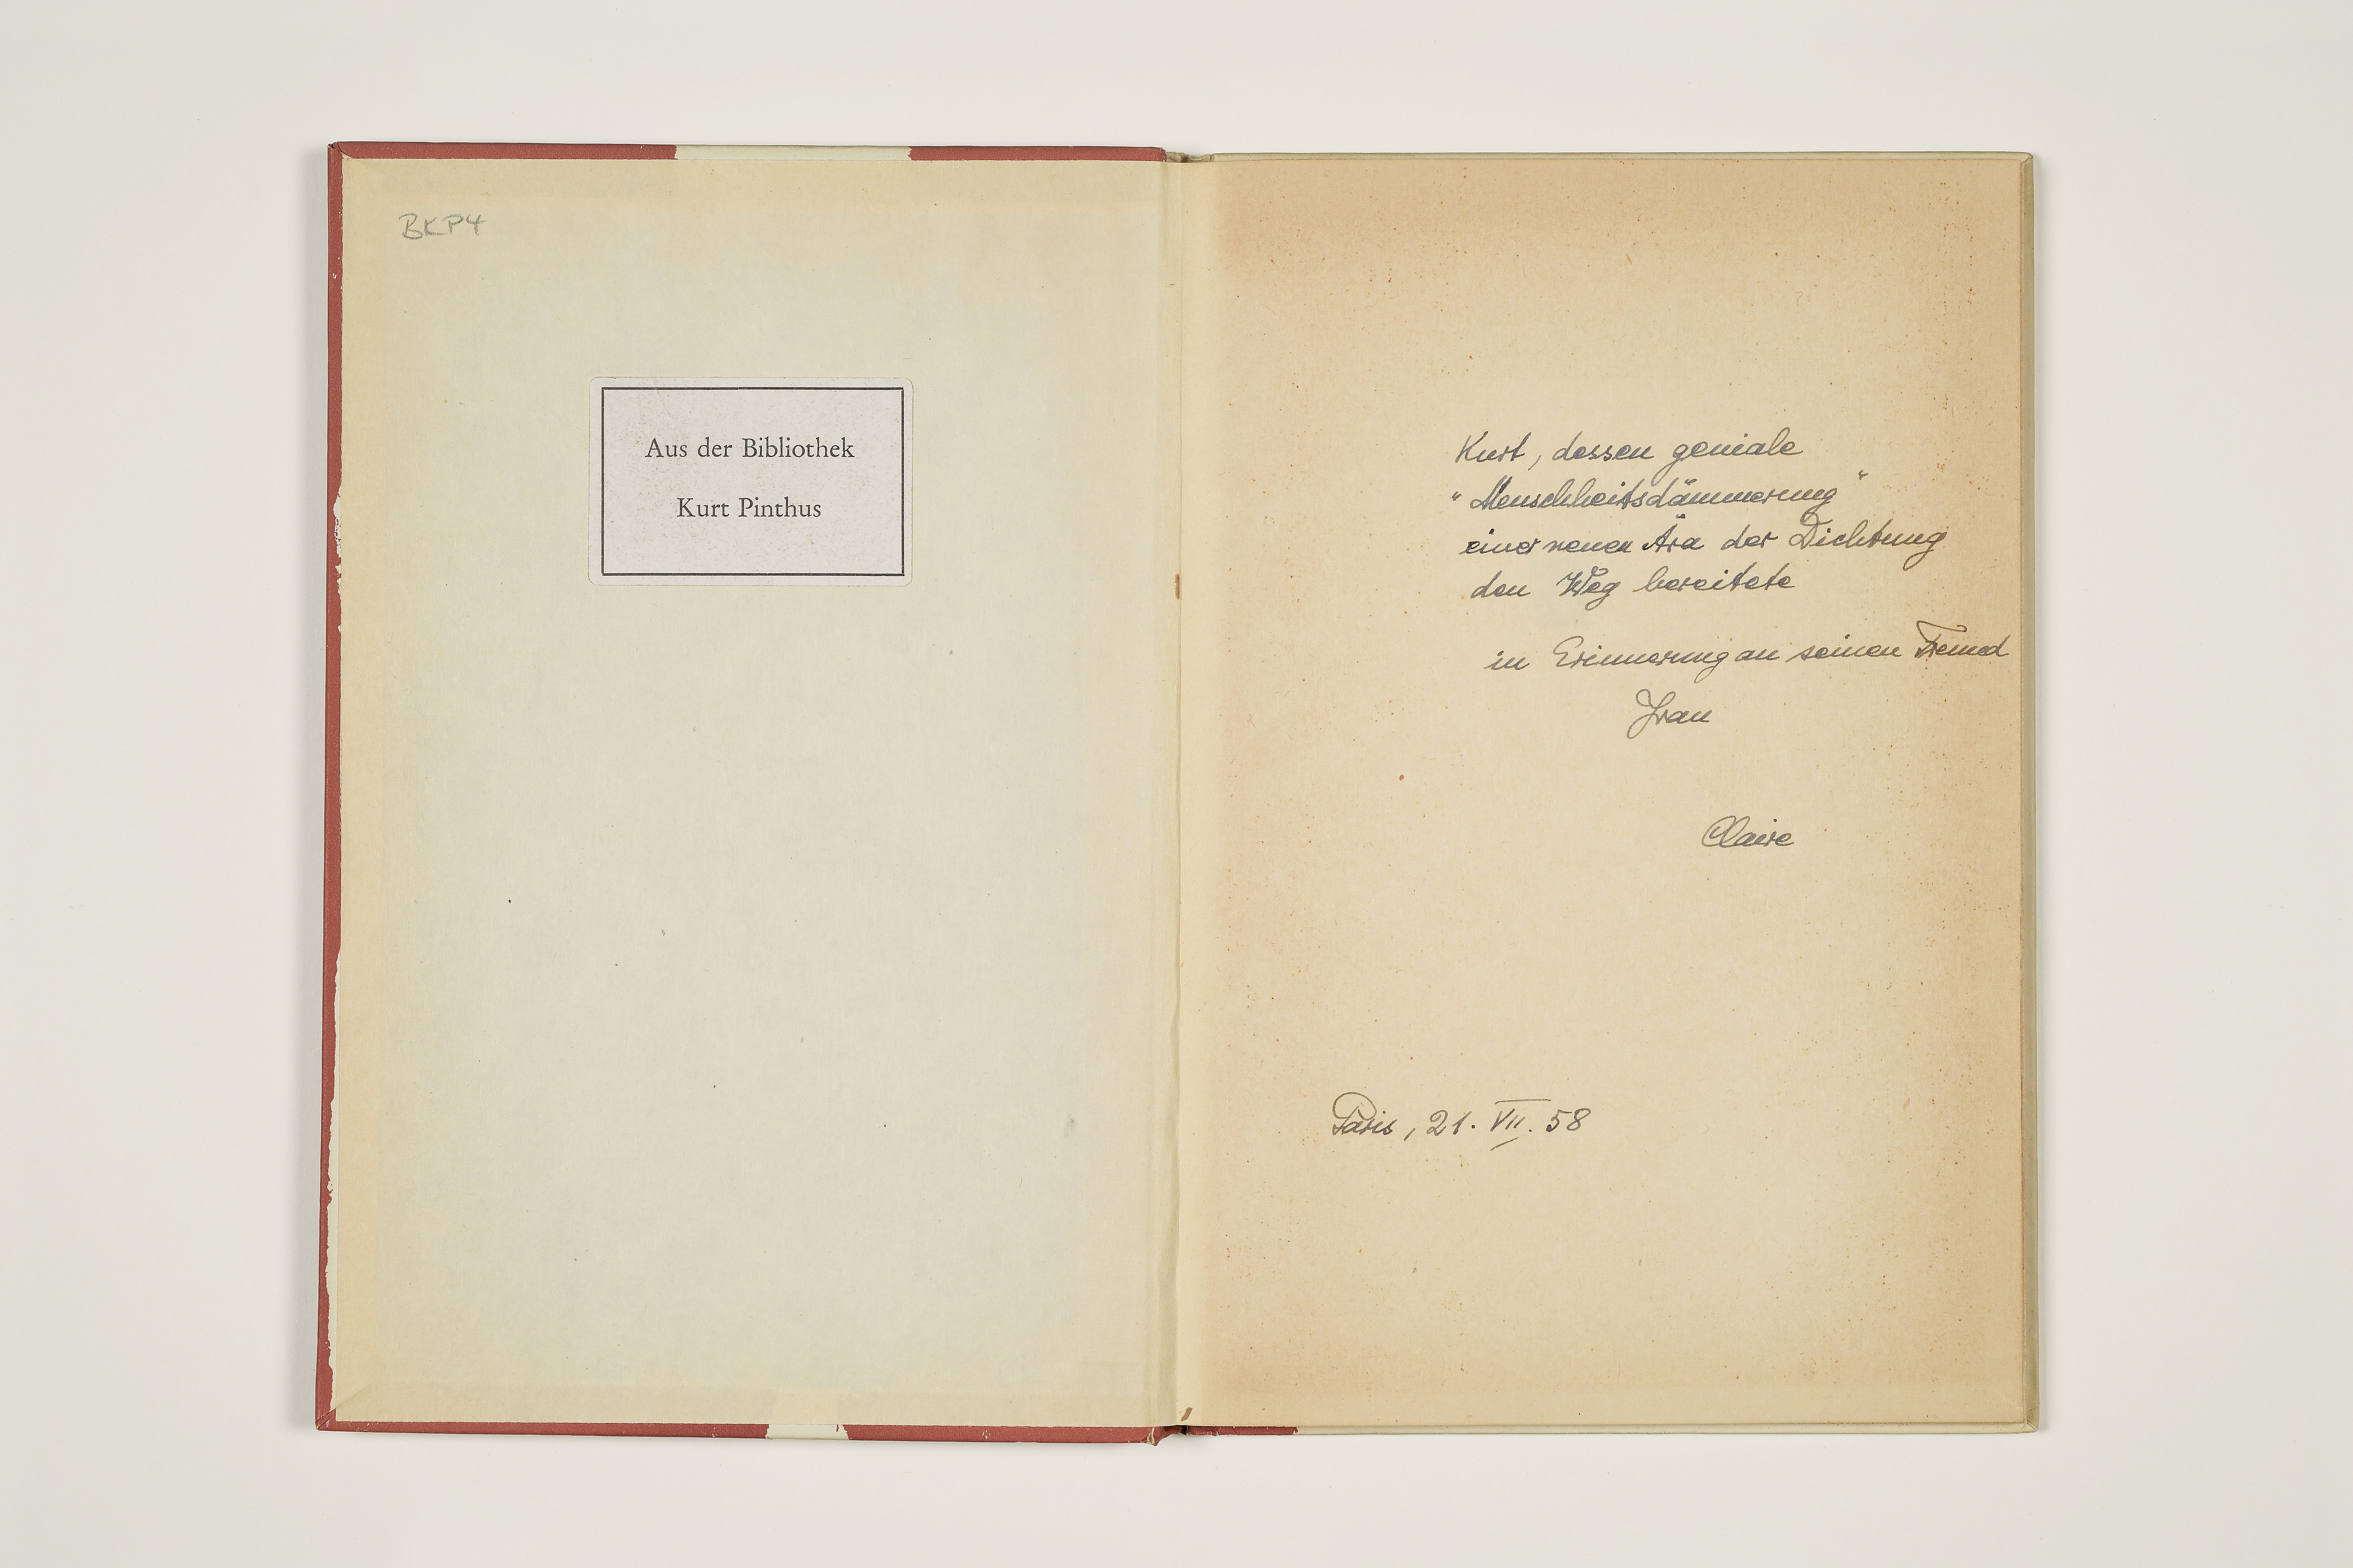 BKP4
Aus der Bibliothek
Kurt Pinthus
Kurt, dessen geniale
"Menschheitsdämmerung"
einer neuen Ära der Dichtung
den Weg bereitete
in Erinnerung an seinen Freund
Ivan
Claire
Paris, 21. VII. 58